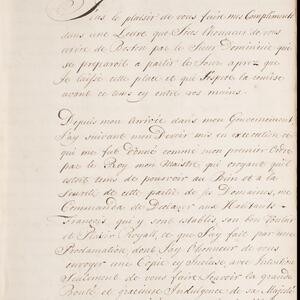 J'eus le plaisir de vous faire mes Compliments
dans une Lettre que J'eus l'honneur de vous
ecrire de Boston par le Sieur Dominicé que
se preparoit a partir le Jour aprez que
Je laissé cette place et que J'espre la remise
avant ce tems cy entre vos mains.
Depuis mon Arrivée dans mon Gouvernement
J'ay suivant mon Devoir mis en execution ce
qui me fut Donné comme mon premier Ordre
par le Roy mon Maistre qui croyant qu'il
estoit tems de pourvoir au Bien et a la
Seureté de cette partie de ses Domaines, me
Commanda de Declarer aux Habitants
François qui y sont establis, son bon Vouloir
et Plaisir Royall, ce que J'ay fait par une
Proclamation, dont J'ay l'honneur de vous
envoyer une Copie cy Incluse avec Intention
Seulement de vous faire Sçavoir la grande
Bonté et gracieuse Indulgence de sa Majesté